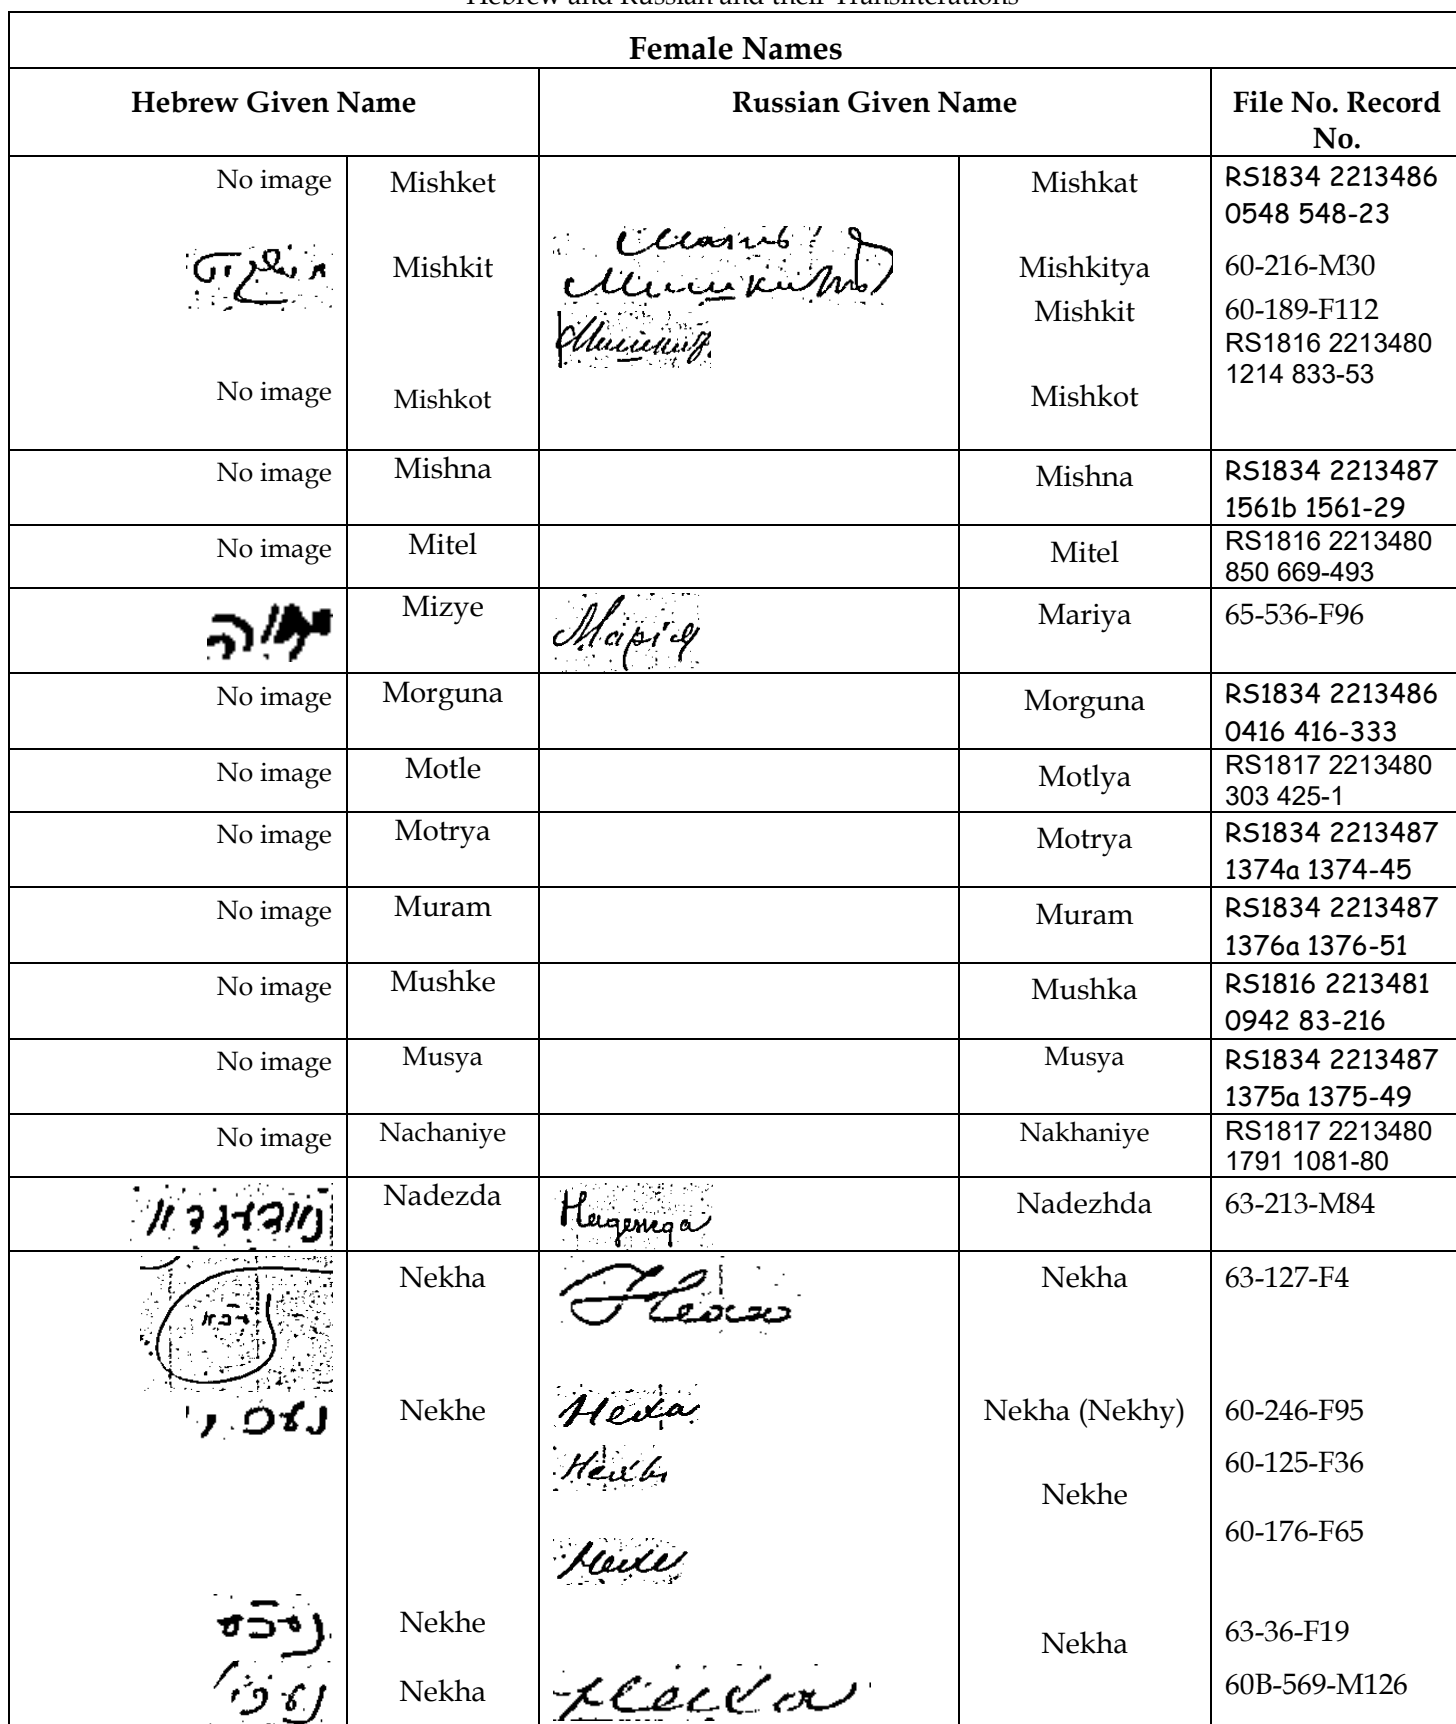 Hebrew and Russian and their Transliterations
Female Names
Hebrew Given Name Russian Given Name File No. Record No.
No image Mishket Mishkat RS1834 2213486
0548 548-23
Mishkit Mishkitya 60-216-M30
Mishkit 60-189-F112
RS1816 2213480
No image Mishkot Mishkot 1214 833-53
No image Mishna Mishna RS1834 2213487
1561b 1561-29
No image Mitel Mitel RS1816 2213480
850 669-493
Mizye Марія Mariya 65-536-F96
No image Morguna Morguna RS1834 2213486
0416 416-333
No image Motle Motlya RS1817 2213480
303 425-1
No image Motrya Motrya RS1834 2213487
1374a 1374-45
No image Muram Muram RS1834 2213487
1376a 1376-51
No image Mushke Mushka RS1816 2213481
0942 83-216
No image Musya Musya RS1834 2213487
1375a 1375-49
No image Nachaniye Nakhaniye RS1817 2213480
1791 1081-80
Nadezda Надежда Nadezhda 63-213-M84
Nekha Неха Nekha 63-127-F4
Nekhe Неха Nekha (Nekhy) 60-246-F95
60-125-F36
Nekhe
Нехе 60-176-F65
Nekhe Nekha 63-36-F19
Nekha Неха 60B-569-M126